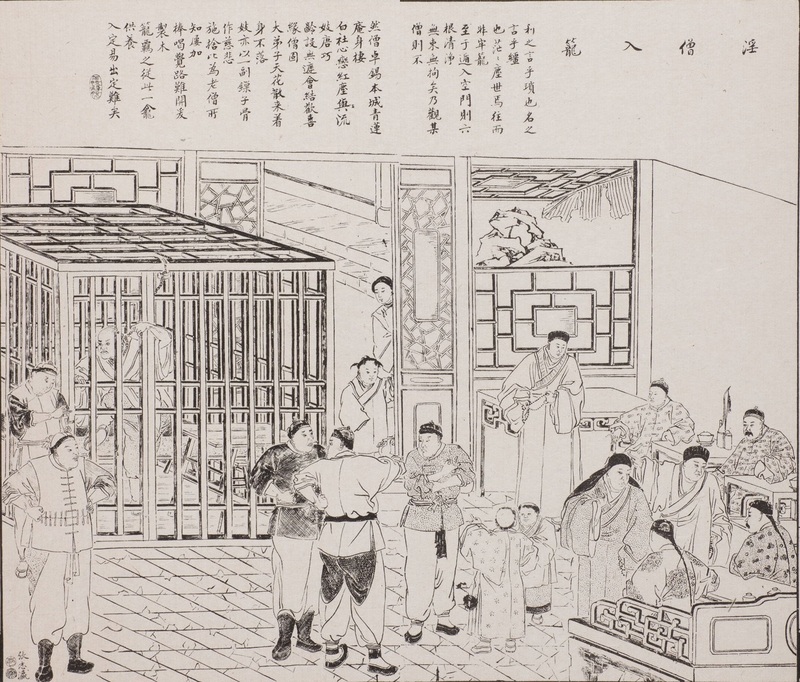 淫僧入籠
利之言乎項也名之
言乎纏
也茫〻塵世焉往而
非牢籠
至于遁入空門則六
根清淨
無束無拘矣乃觀某
僧則不
然僧卓錫本城青蓮
庵身棲
白社心戀紅塵與流
妓唐巧
齡設無遮會結歡喜
緣僧固
大弟子天花散來着
身不落
妓亦以一副鎖子骨
作慈悲
施捨以為老僧所
知屢加
棒喝覺路難開爰
製木
籠羈之從此一龕
供養
入定易出定難矣
張志瀛